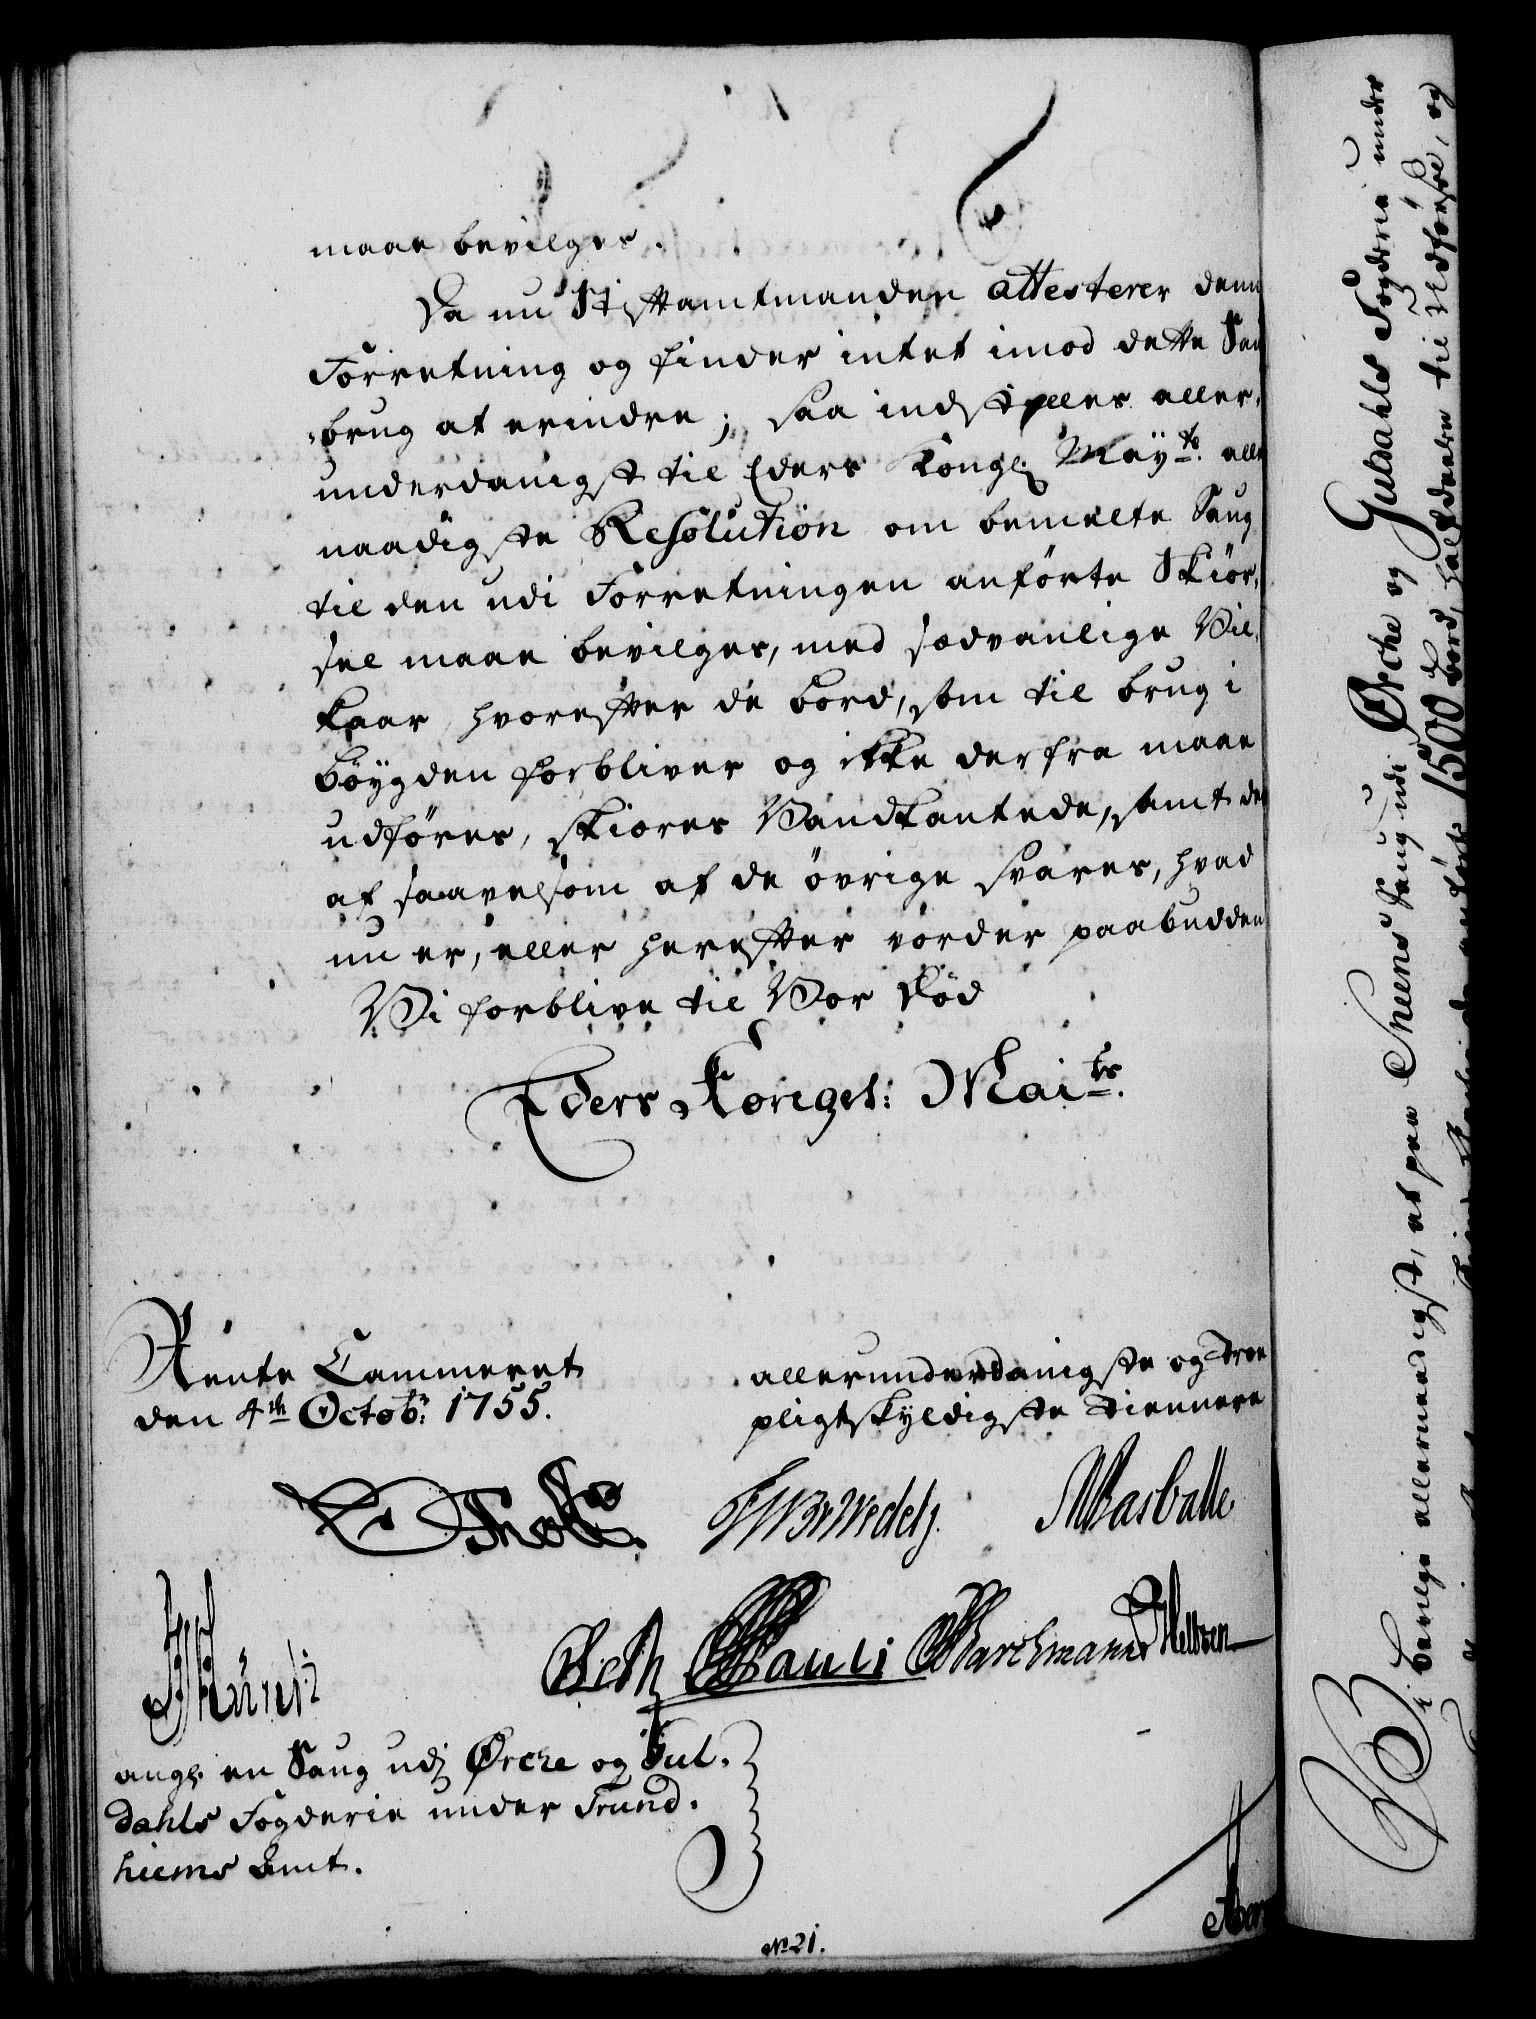 maae bevilges.
Da nu Stiftamtmanden attesterer denne
Forretning og finder intet imod dette Saug
brug at erindre; saa indstilles aller-
underdanigst til Eders Kongl. Mayts. aller
naadigste Resolution om bemelte Saug
til den udi Forretningen anførte Skiør-
sel maae bevilges, med sædvanlige Vil-
kaar, hvorefter de bord, som til brug i
bøygden forbliver og ikke derfra maae
udføres, skiæres Vandkantede, samt der
af saavelsom af de øvrige svares, hvad
nu er, eller herefter vorder paabudden
Vi forblive til Vor Død
Eders Kongel: Maits.
Rente Cammeret
den 4th Octobr: 1755.
allerunderdanigste og troe
pligtskyldigste Tiennere
Holst.
Wedell.
Pauli
Barchmann
angl. en Saug udj Ørche og Gul-
dahls Fogderie under Trund-
hiems Amt.
No 21.
Vi bevilge allernaadigst, at paa Skeens Saug udi Ørche og Guldahls Fogderie under
1500 bord, halfdeelen til Udførsel, og